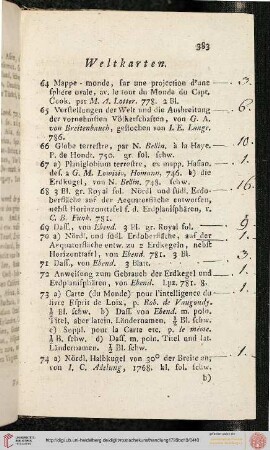 383
Weltkarten.
64 Mappe-monde, sur une projection d'une
sphère ovale, av. le tour du Monde du Capt.
Cook. par M. A. Lotter. 778. 2 Bl.
3.
65 Vorstellungen der Welt und die Ausbreitung
der vornehmsten Völkerschaften, von G. A.
von Breitenbauch, gestochen von I. E.
786.
6.
66 Globe terrestre, par N. Bellin, à la Haye.
P. de Hondt. 750. gr. fol. schw.
10.
67 a) Planiglobium terrestre, ex mapp. Hasian.
des. a G. M. Lowizio, Homann, 746. b) die
Erdkugel, von N. Bellin. 748. schw.
1.
68 3 Bl. gr. Royal fol. Nördl. und südl. Erd-
oberfläche auf der Aequatorfläche entworfen,
nebst Horizonten f. d. Erdplanisphären, v.
C. B. Funk. 781.
16.
69 Dass. von Ebend. 3 Bl. gr. Royal fol.
70 a) Nörd. und südl. Erdoberfläche, auf der
Aequatorfläche entw. zu 2 Erdkegeln, nebst
Horizonten, von Ebend. 781. 3 Bl.
9
71 Dass. von Ebend. 3 Blatt.
3.
72 Anweisung zum Gebrauch der Erdkegel und
Erdplanisphären, von Ebend. Lpz. 781. 8.
1.
73 a) Carte (du Monde) pour l'intelligence du
livre Esprit de Loix, p. Rob. de Vaugondy.
½ Bl. schw. b) Dass. von Ebend. m. polo.
Titel, aber latein. Ländernamen. ½ Bl. schw.
c) Suppl. pour la Carte etc. p. le meme.
½ B. schw. d) Dass. m. poln. Titel und lat.
Ländernamen. ½ Bl. schw.
1.
74 a) Nördl. Halbkugel von 30° der Breite an,
von I. C. Adelung, 1768. kl. fol. schw.
1.
b)